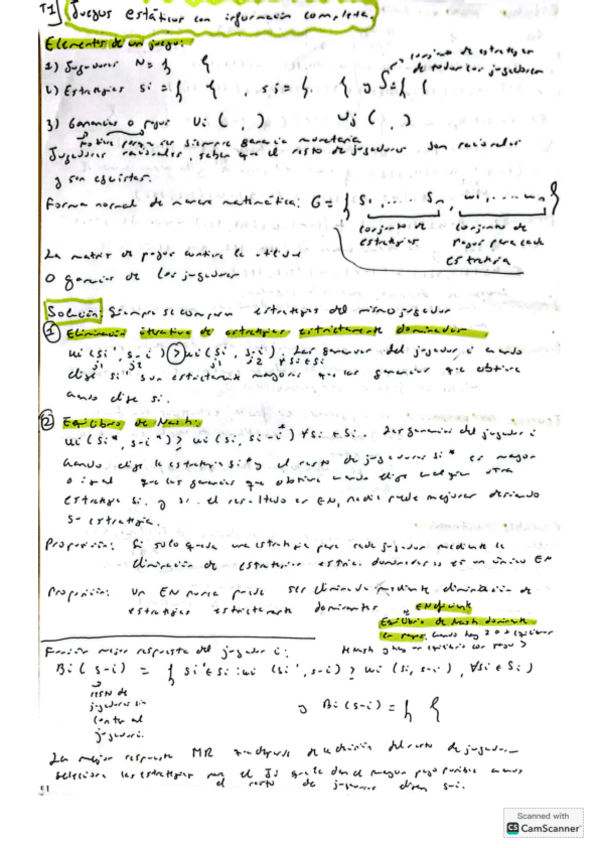 T1] Juegos estáticos con información completa.
Elementos de un juego:
1) Jugadores N = { }
conjunto de estrategias de todos los jugadores
2) Estrategias si = { }, sj = { } y S = { }
3) Ganancias o pagos ui ( , ) uj ( , )
siempre ganancia monetaria
Jugadores racionales, saben que el resto de jugadores son racionales
y son egoístas.
Forma normal de manera matemática: G = { s1, .... sn, u1, .... un }
conjunto de estrategias
pagos para cada estrategia
La matriz de pagos contiene la utilidad
o ganancias de los jugadores
Solución: Siempre se comparan estrategias del mismo jugador
① Eliminación iterativa de estrategias estrictamente dominadas
ui (si', s-i) > ui (si, s-i), Las ganancias del jugador i cuando
j1 j2 j1 j2 ∀ si ∈ Si
elige si' son estrictamente mayores que las ganancias que obtiene
cuando elige si.
② Equilibrio de Nash:
ui (si*, s-i*) ≥ ui (si, s-i*) ∀ si ∈ Si. Las ganancias del jugador i
cuando elige la estrategia si* y el resto de jugadores si* es mayor
o igual que las ganancias que obtiene cuando elige cualquier otra
estrategia si. y si el resultado es EN, nadie puede mejorar desviando
su estrategia.
Proposición: Si solo queda una estrategia para cada jugador mediante la
eliminación de estrategias estric. dominadas es un único EN
Proposición: Un EN nunca puede ser eliminado mediante eliminación de
estrategias estrictamente dominantes
EN eficiente
Equilibrio de Nash dominante
en pagos, cuando hay 2 o + equilibrios
de Nash y hay un equilibrio con pagos >
Función mejor respuesta del jugador i:
Bi (s-i) = { si' ∈ Si : ui (si', s-i) ≥ ui (si, s-i), ∀ si ∈ Si }
resto de
jugadores sin
contar al
jugador i.
y Bi (s-i) = { }
La mejor respuesta MR depende de la decisión del resto de jugadores
selecciona las estrategias que le dan el mayor pago posible cuando
el resto de jugadores eligen s-i.
Scanned with
CS CamScanner